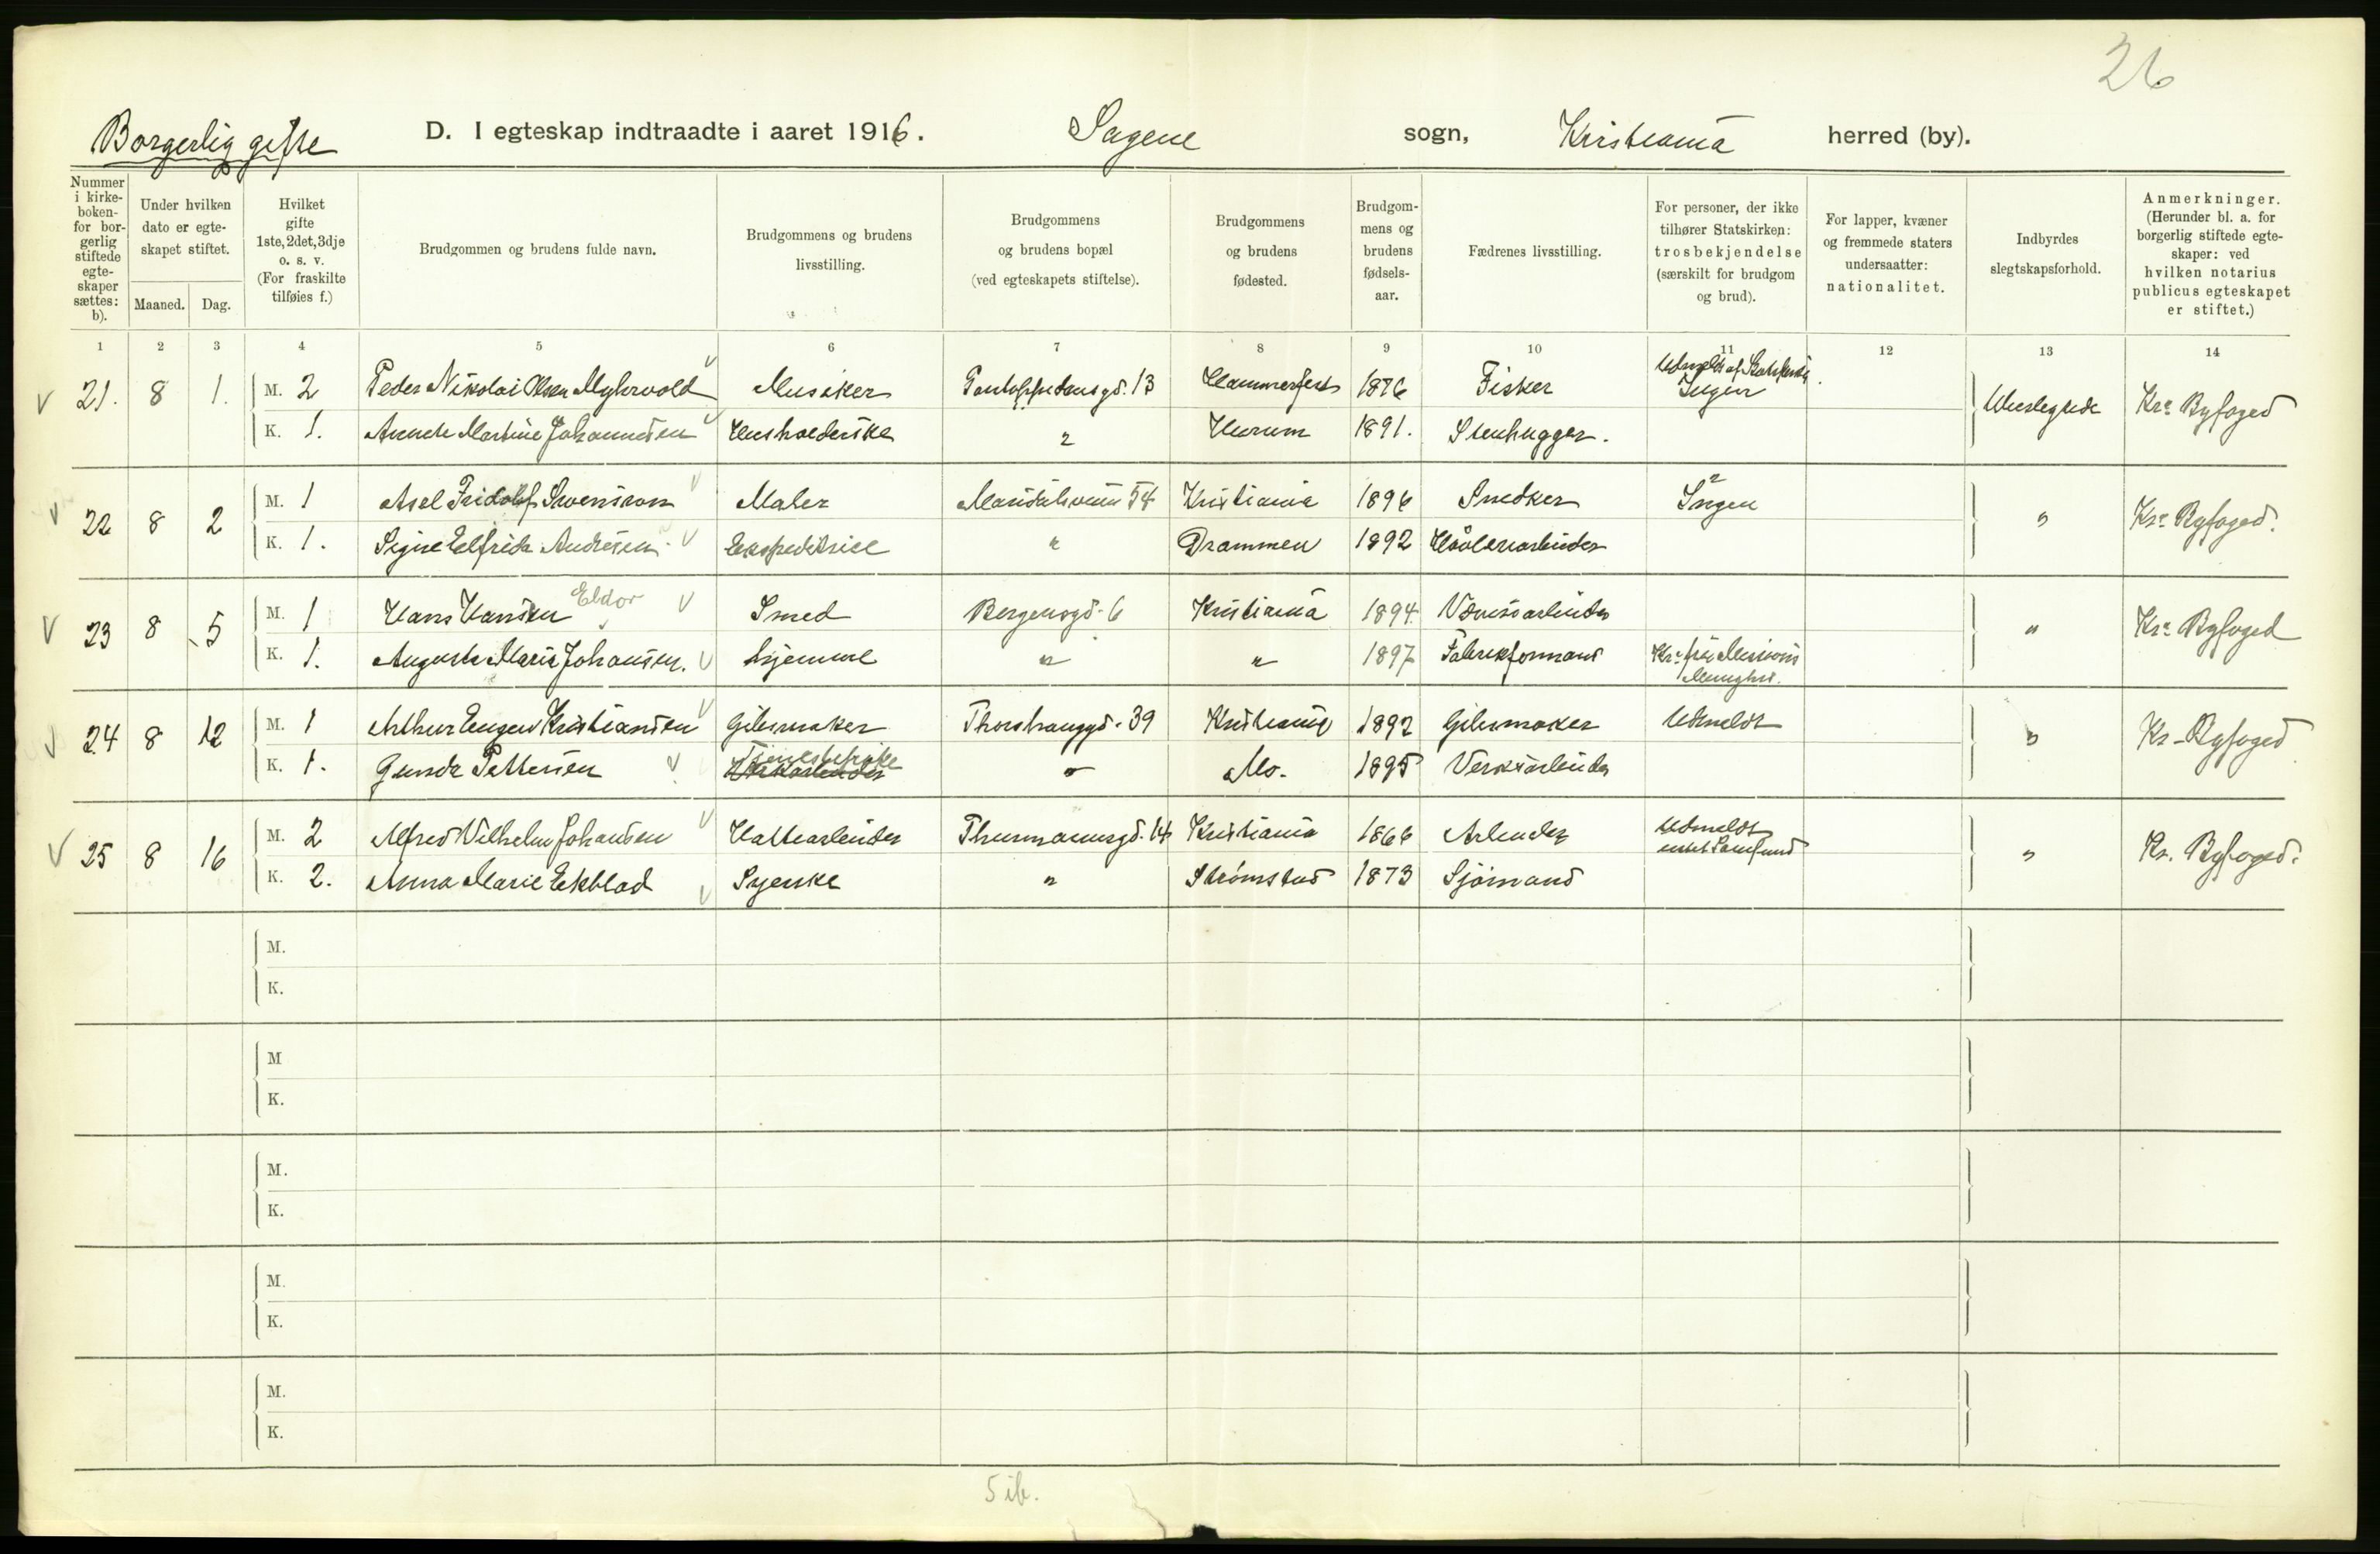 26
Borgerlig gifte D. I egteskap indtraadte i aaret 1916. Sagene sogn, Kristiania herred (by).
Nummer i kirke- boken- for bor- gerlig stiftede egte- skaper sættes: b).
Under hvilken dato er egte- skapet stiftet.
Maaned. Dag.
Hvilket gifte 1ste, 2det, 3dje o. s. v. (For fraskilte tilføies f.)
Brudgommen og brudens fulde navn.
Brudgommens og brudens livsstilling.
Brudgommens og brudens bopæl (ved egteskapets stiftelse).
Brudgommens og brudens fødested.
Brudgom- mens og brudens fødsels- aar.
Fædrenes livsstilling.
For personer, der ikke tilhører Statskirken: trosbekjendelse (særskilt for brudgom og brud).
For lapper, kvæner og fremmede staters undersaatter: nationalitet.
Indbyrdes slegtskapsforhold.
Anmerkninger. (Herunder bl. a. for borgerlig stiftede egte- skaper: ved hvilken notarius publicus egteskapet er stiftet.)
1 2 3 4 5 6 7 8 9 10 11 12 13 14
V 21. 8 1. M. 2 Peder Nikolai Olsen Myhrvold V Musiker 13 Hammerfest 1876 Fisker Udmeldt af Statskirken Ingen Ubeslegtede Kra Byfoged
K. 1. Annete Martine Johannesen V Husholderske " Hurum 1891. Stenhugger.
V 22 8 2 M. 1 Axel Fridolf Svenson V Maler Maridalsveien 54 Kristiania 1896 Snedker Ingen " Kra Byfoged.
K. 1. Signe Elfrida Andresen V Ekspeditrice " Drammen 1892 Høvleriarbeider
V 23 8 5 M. 1 Hans Hansen Eldor V Smed Bergensgd. 6 Kristiania 1894 " Kra Byfoged
K. 1. Augusta Marie Johansen. V hjemme " " 1897 Fabrikformand Kra frie Missions Menighet.
V 24 8 12 M. 1 Arthur Eugen Kristiansen V Gibsmaker Thorshauggd. 39 Kristiania 1892 Gibsmaker Udmeldt " Kr. Byfoged
K. 1. Gunda Pettersen V Tjenestepike " Mo. 1895 Verksarbeider
V 25 8 16 M. 2 Alfred Vilhelm Johansen V Hattearbeider Thurmannsgd. 14 Kristiania 1866 Arbeider Udmeldt intet Samfund " Kr. Byfoged.
K. 2. Anna Marie Ekblad V Syerske " Strømstad 1873 Sjømand
M.
K.
M
K.
M.
K.
M.
K.
M.
K.
5 ib.